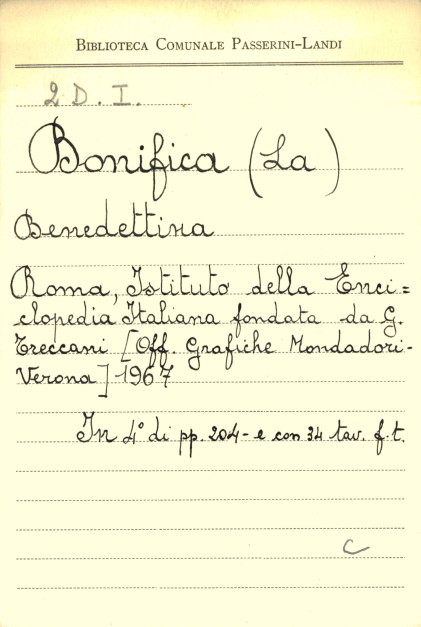 BIBLIOTECA COMUNALE PASSERINI-LANDI
2 D. I.
Bonifica (La)
Benedettina
Roma, Istituto della Enci=
clopedia Italiana fondata da G.
Treccani [Off. Grafiche Mondadori-
Verona] 1967
In 4° di pp. 204- e con 34 tav. f.t.
C